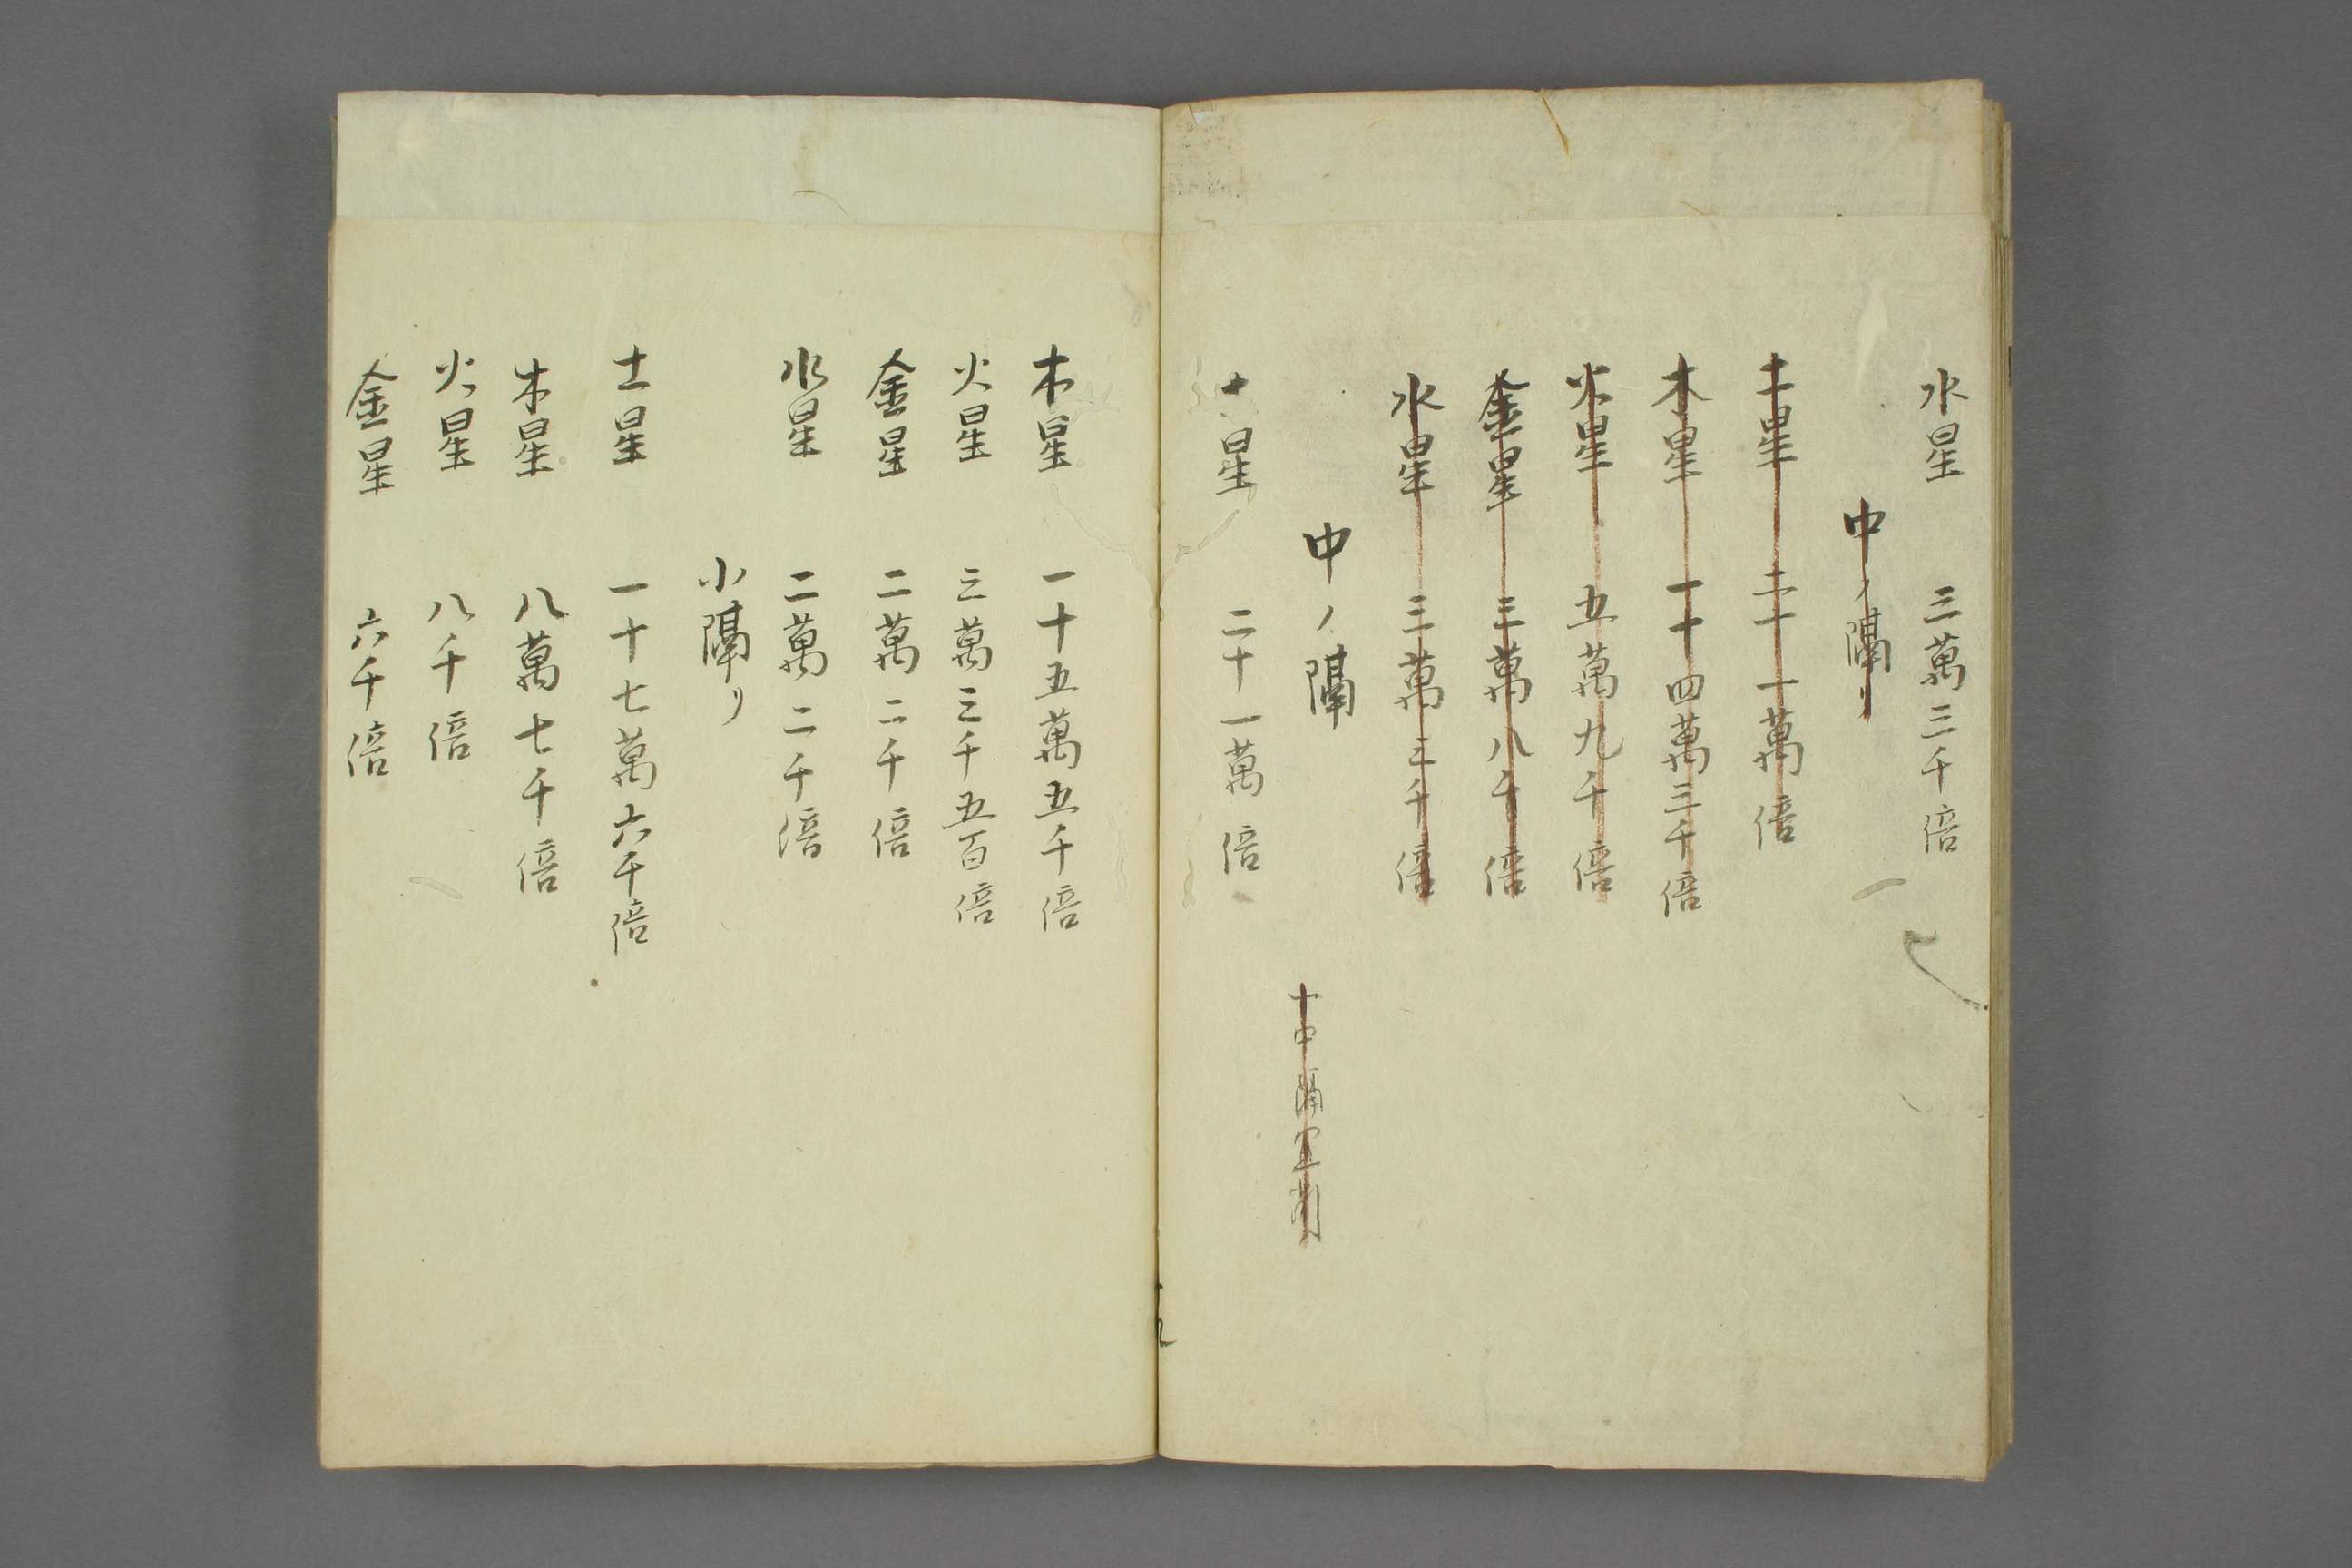 水星 三萬三千倍
中ノ隔リ
土星 二十一萬倍
木星 一十四萬三千倍
火星 五萬九千倍
金星 三萬八千倍
水星 三萬三千倍
中ノ隔
十中隔
土星 二十一萬倍
木星 一十五萬五千倍
火星 三萬三千五百倍
金星 二萬二千倍
水星 二萬二千倍
小隔リ
土星 一十七萬六千倍
木星 八萬七千倍
火星 八千倍
金星 六千倍